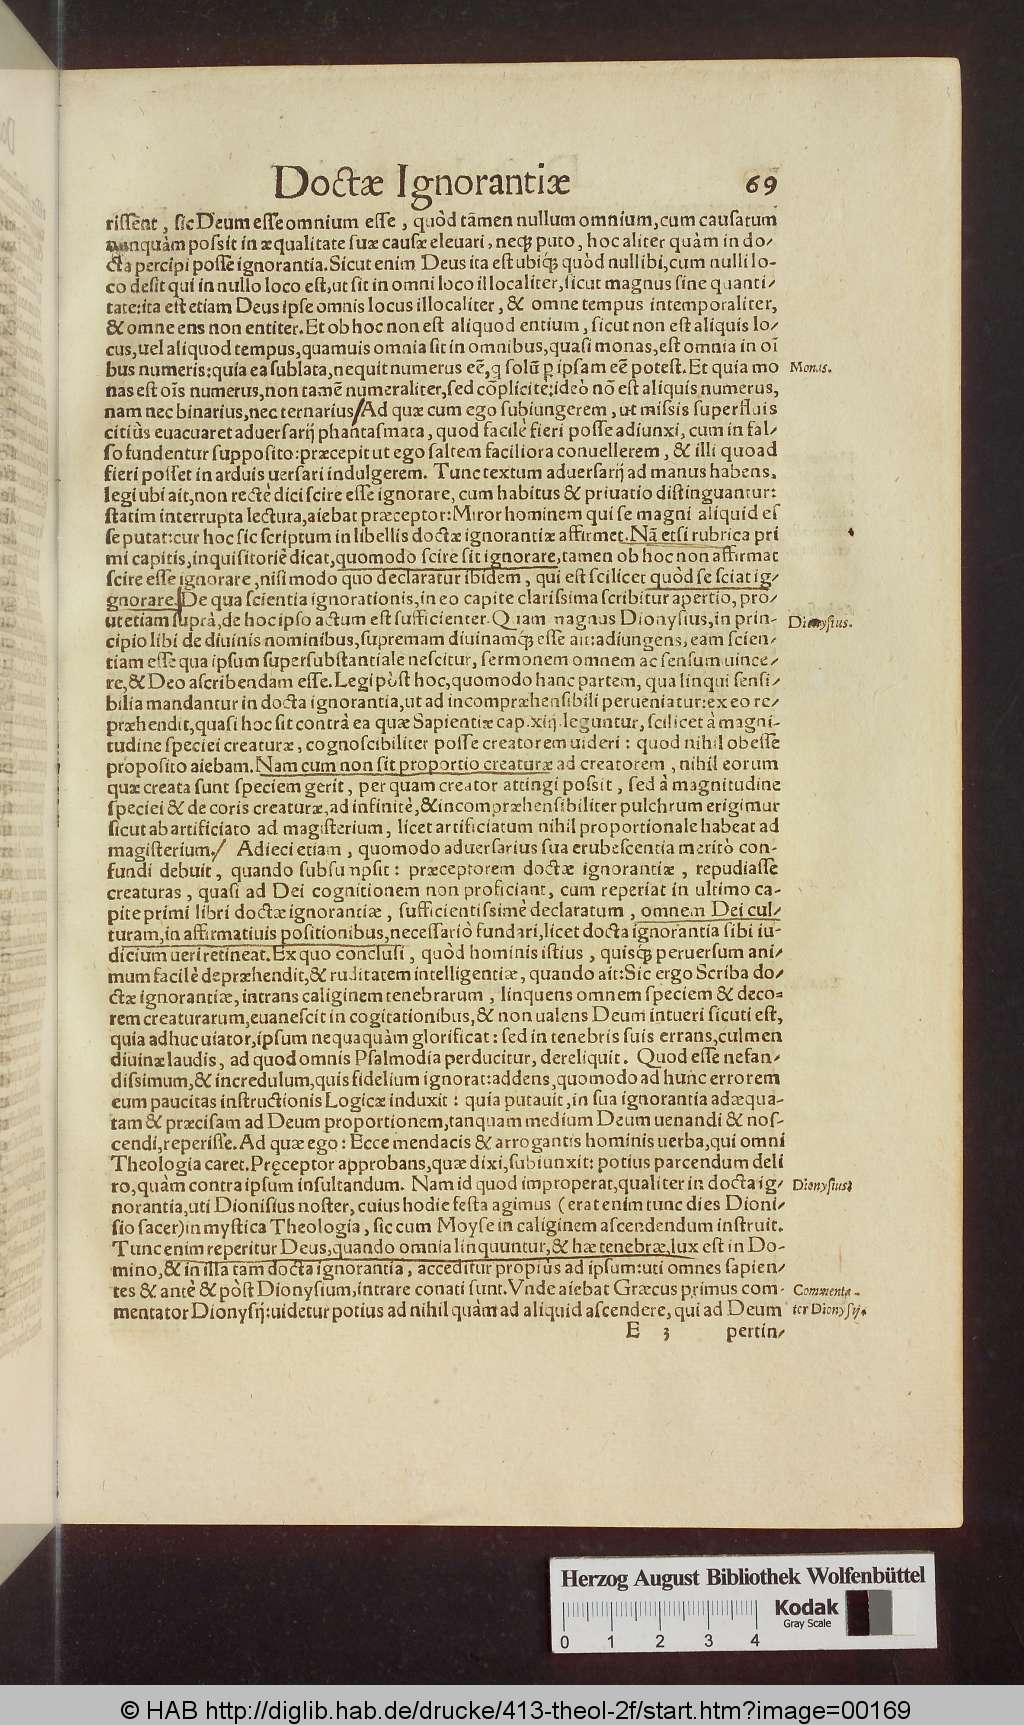 Doctæ Ignorantiæ 69
riſſent, ſic Deum eſſe omnium eſſe, quòd tãmen nullum omnium, cum cauſatum
nunquàm poſsit in æqualitate ſuæ cauſæ eleuari, neq; puto, hoc aliter quàm in do/
cta percipi poſſe ignorantia. Sicut enim Deus ita eſt ubiq; quòd nullibi, cum nulli lo-
co deſit qui in nullo loco eſt, ut ſit in omni loco illocaliter, ſicut magnus ſine quanti/
tate: ita eſt etiam Deus ipſe omnis locus illocaliter, & omne tempus intemporaliter,
& omne ens non entiter. Et ob hoc non eſt aliquod entium, ſicut non eſt aliquis lo/
cus, uel aliquod tempus, quamuis omnia ſit in omnibus, quaſi monas, eſt omnia in oı̃
bus numeris: quia ea ſublata, nequit numerus eẽ, q ſolũ p ipſam eẽ poteſt. Et quia mo Monas.
nas eſt oı̃s numerus, non tamẽ numeraliter, ſed cõplicitè; ideò nõ eſt aliquis numerus,
nam nec binarius, nec ternarius/ Ad quæ cum ego ſubiungerem, ut miſsis ſuperfluis
citiùs euacuaret aduerſarij phantaſmata, quod facilè fieri poſſe adiunxi, cum in fal/
ſo fundentur ſuppoſito: præcepit ut ego ſaltem faciliora conuellerem, & illi quoad
fieri poſſet in arduis uerſari indulgerem. Tunc textum aduerſarij ad manus habens,
legi ubi ait, non rectè dici ſcire eſſe ignorare, cum habitus & priuatio diſtinguantur:
ſtatim interrupta lectura, aiebat præceptor: Miror hominem qui ſe magni aliquid eſ
ſe putat: cur hoc ſic ſcriptum in libellis doctæ ignorantiæ affirmet. Nã etſi rubrica pri
mi capitis, inquiſitoriè dicat, quomodo ſcire ſit ignorare, tamen ob hoc non affirmat
ſcire eſſe ignorare, niſi modo quo declaratur ibidem, qui eſt ſcilicet quòd ſe ſciat ig/
gnorare. De qua ſcientia ignorationis, in eo capite clariſsima ſcribitur apertio, pro/
ut etiam ſuprà, de hoc ipſo actum eſt ſufficienter. Quam magnus Dionyſius, in prin- Dionyſius.
cipio libi de diuinis nominibus, ſupremam diuinamq; eſſe ait: adiungens, eam ſcien-
tiam eſſe qua ipſum ſuperſubſtantiale neſcitur, ſermonem omnem ac ſenſum uince/
re, & Deo aſcribendam eſſe. Legi pòſt hoc, quomodo hanc partem, qua linqui ſenſi/
bilia mandantur in docta ignorantia, ut ad incompræhenſibili perueniatur: ex eo re/
præhendit, quaſi hoc ſit contrà ea quæ Sapientiæ cap. xiij. leguntur, ſcilicet à magni-
tudine ſpeciei creaturæ, cognoſcibiliter poſſe creatorem uideri: quod nihil obeſſe
propoſito aiebam. Nam cum non ſit proportio creaturæ ad creatorem, nihil eorum
quæ creata ſunt ſpeciem gerit, per quam creator attingi poſsit, ſed à magnitudine
ſpeciei & decoris creaturæ, ad infinitè, & incompræhenſibiliter pulchrum erigimur
ſicut ab artificiato ad magiſterium, licet artificiatum nihil proportionale habeat ad
magiſterium./ Adieci etiam, quomodo aduerſarius ſua erubeſcentia meritò con-
fundi debuit, quando ſubſumpſit: præceptorem doctæ ignorantiæ, repudiaſſe
creaturas, quaſi ad Dei cognitionem non proficiant, cum reperiat in ultimo ca-
pite primi libri doctæ ignorantiæ, ſufficientiſsimè declaratum, omnem Dei cul/
turam, in affirmatiuis poſitionibus, neceſſariò fundari, licet docta ignorantia ſibi iu-
dicium ueri retineat. Ex quo concluſi, quòd hominis iſtius, quiſq; peruerſum ani/
mum facilè depræhendit, & ruditatem intelligentiæ, quando ait: Sic ergo Scriba do/
ctæ ignorantiæ, intrans caliginem tenebrarum, linquens omnem ſpeciem & deco=
rem creaturarum, euaneſcit in cogitationibus, & non ualens Deum intueri ſicuti eſt,
quia adhuc uiator, ipſum nequaquàm glorificat: ſed in tenebris ſuis errans, culmen
diuinæ laudis, ad quod omnis Pſalmodia perducitur, dereliquit. Quod eſſe nefan/
diſsimum, & incredulum, quis fidelium ignorat: addens, quomodo ad hunc errorem
eum paucitas inſtructionis Logicæ induxit: quia putauit, in ſua ignorantia adæqua-
tam & præciſam ad Deum proportionem, tanquam medium Deum uenandi & noſ-
cendi, reperiſſe. Ad quæ ego: Ecce mendacis & arrogantis hominis uerba, qui omni
Theologia caret. Pręceptor approbans, quæ dixi, ſubiunxit: potius parcendum deli
ro, quàm contra ipſum inſultandum. Nam id quod improperat, qualiter in docta ig/ Dionyſius;
norantia, uti Dioniſius noſter, cuius hodie feſta agimus (erat enim tunc dies Dioni/
ſio ſacer) in myſtica Theologia, ſic cum Moyſe in caliginem aſcendendum inſtruit.
Tunc enim reperitur Deus, quando omnia linquuntur, & hæ tenebræ, lux eſt in Do-
mino, & in illa tam docta ignorantia, acceditur propiùs ad ipſum: uti omnes ſapien/
tes & antè & pòſt Dionyſium, intrare conati ſunt. Vnde aiebat Græcus primus com- Commenta-
mentator Dionyſij: uidetur potius ad nihil quàm ad aliquid aſcendere, qui ad Deum tor Dionyſij.
E 3 pertin/
Herzog August Bibliothek Wolfenbüttel
Kodak
Gray Scale
0 1 2 3 4
© HAB http://diglib.hab.de/drucke/413-theol-2f/start.htm?image=00169